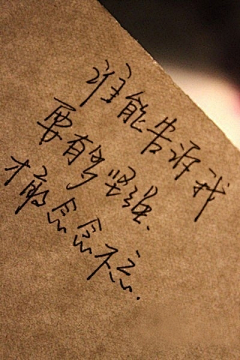 谁能告诉我
要有多坚强、
才敢念念不忘.